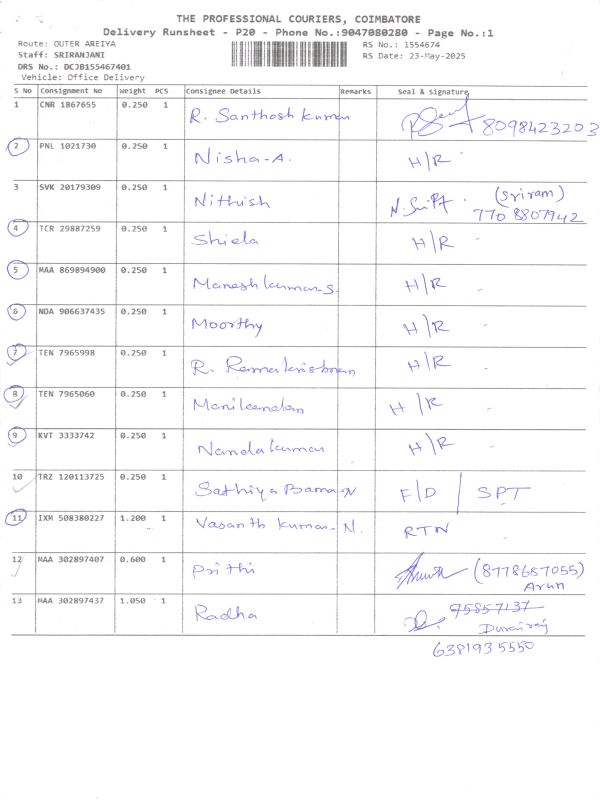 THE PROFESSIONAL COURIERS, COIMBATORE
Delivery Runsheet - P20 - Phone No.:9047080280 - Page No.:1
Route: OUTER AREIYA RS No.: 1554674
Staff: SRIRANJANI RS Date: 23-May-2025
DRS No.: DCJB155467401
Vehicle: Office Delivery
S No Consignment No Weight PCS Consignee Details Remarks Seal & Signature
1 CNR 1867655 0.250 1 R. Santhosh kumar 8098423203
2 PNL 1021730 0.250 1 Nisha-A. H/R
3 SVK 20179309 0.250 1 Nithish (Sriram)
770 8807942
4 TCR 29887259 0.250 1 Shiela H/R
5 MAA 869894900 0.250 1 Maneshkumar-S. H/R
6 NDA 906637435 0.250 1 Moorthy H/R
7 TEN 7965998 0.250 1 R. Ramakrishnan H/R
8 TEN 7965060 0.250 1 Manikandan H/R
9 KVT 3333742 0.250 1 Nandakumar H/R
10 TRZ 120113725 0.250 1 Sathiya Bama-N F/D / SPT
11 IXM 508380227 1.200 1 Vasanth kumar-N. RTN
12 MAA 302897407 0.600 1 Prithi (8778657055)
Arun
13 MAA 302897437 1.050 1 Radha 95857137
Durairaj
6381935550